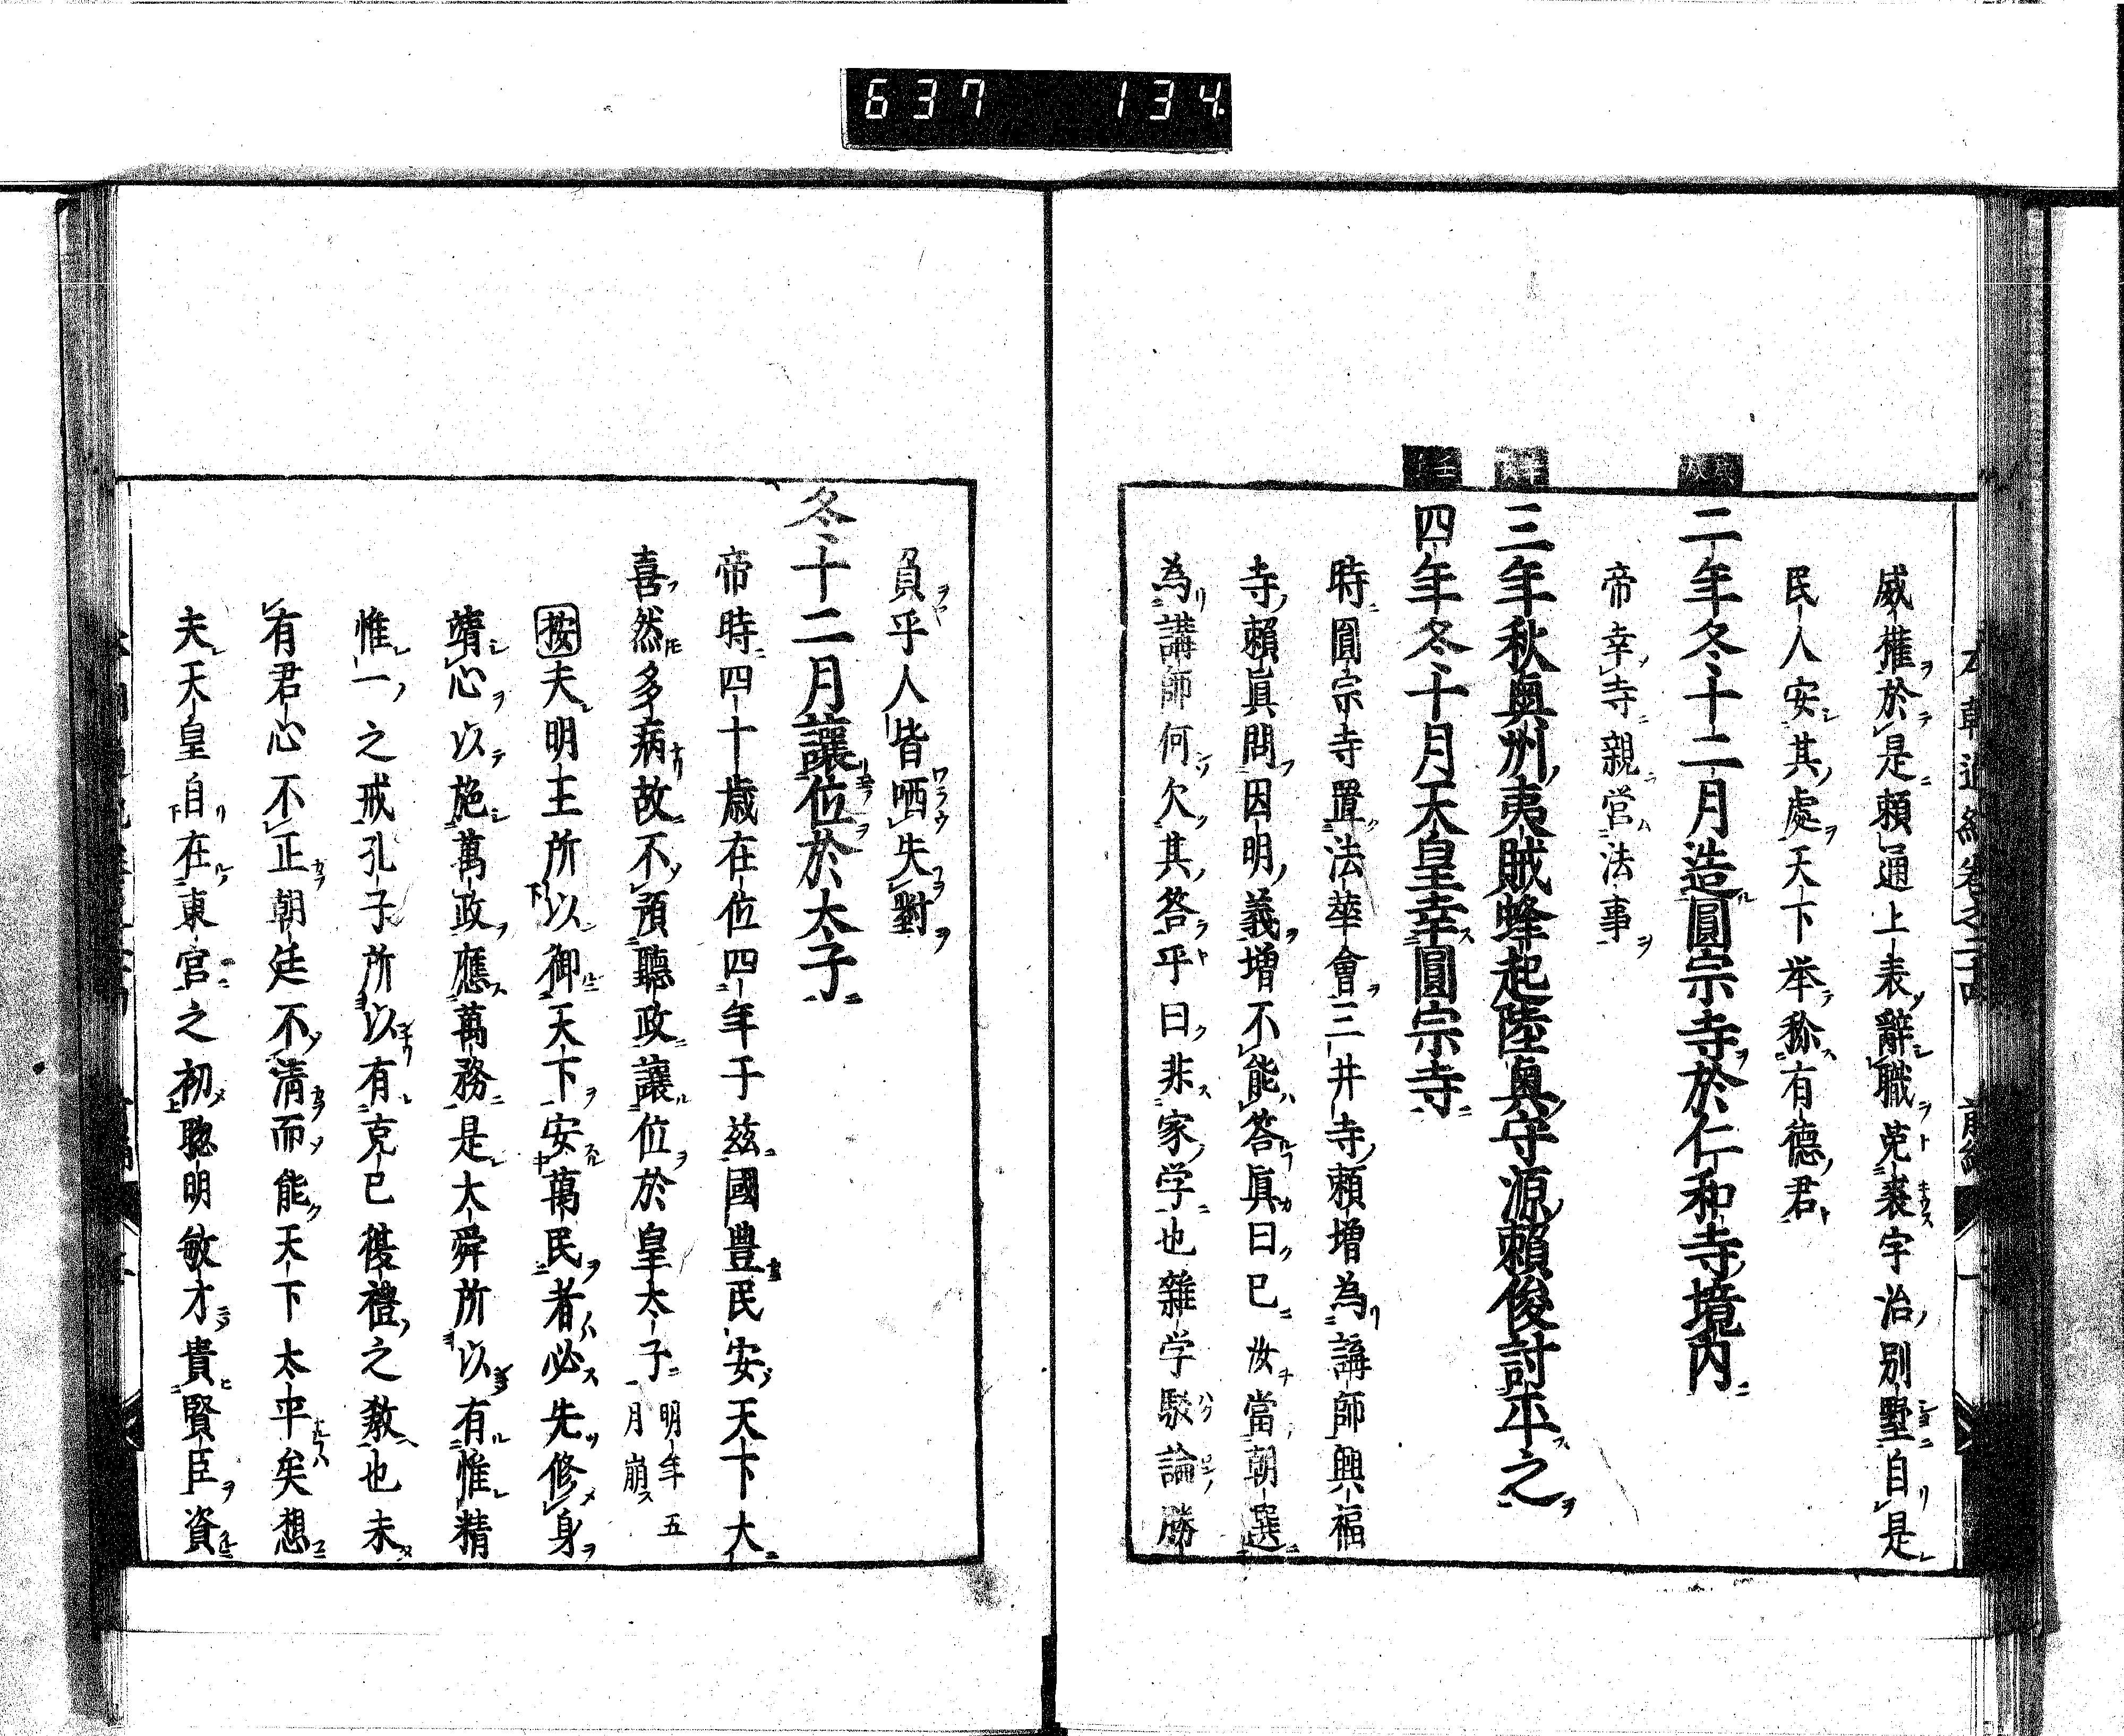 637 134
威權於是頼通上表辭職菟裘宇治別墅自是
民人安其處天下举称有德君
二年冬十二月造圓宗寺於仁和寺境内
帝幸寺親営法事
三年秋奥州夷賊蜂起陸奥守源頼俊討平之
四年冬十月天皇幸圓宗寺
時圓宗寺置法華會三井寺頼増為講師興福
寺頼眞問因明義増不能答眞曰已汝當朝選
為講師何欠其答乎曰非家学也雜学駁論勝
負乎人皆哂失對
冬十二月讓位於太子
帝時四十歳在位四年于茲國豊民安天下大
喜然多病故不預聽政讓位於皇太子明年五
月崩
按夫明王所以御天下安萬民者必先修身
靖心以施萬政應萬務是大舜所以有惟精
惟一之戒孔子所以有克已復禮之教也未
有君心不正朝廷不清而能天下太平矣想
夫天皇自在東宮之初聰明敏才貴賢臣資